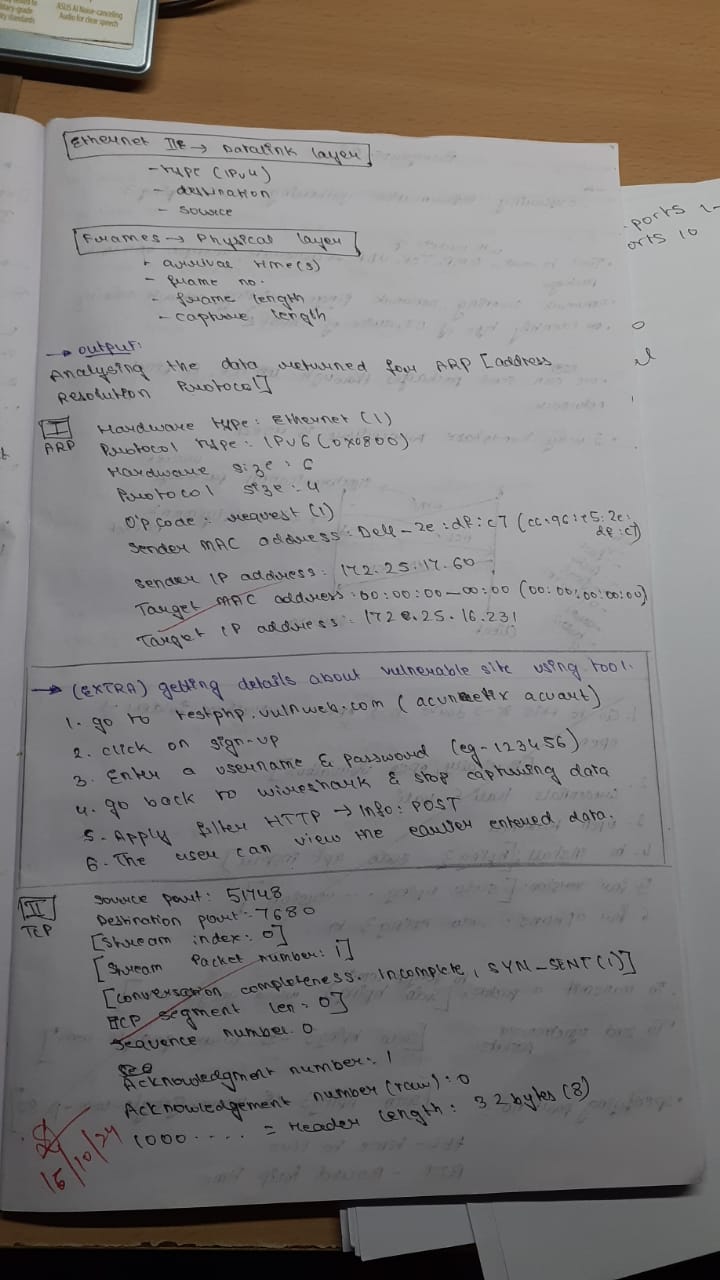 ASUS AI Noise-canceling
Audio for clear speech
Ethernet II → Datalink layer
- type (IPv4)
- destination
- source
Frames → Physical layer
+ arrival time(s)
- frame no.
- frame length
- capture length
→ output:
Analysing the data returned for ARP [address
Resolution Protocol]
I
ARP
Hardware type: Ethernet (1)
Protocol type: IPv6 (0x0800)
Hardware size: 6
Protocol size: 4
Opcode: request (1)
Sender MAC address: Dell-2e:df:c7 (cc:96:e5:2e:
df:c7)
Sender IP address: 172.25.17.60
Target MAC address: 00:00:00-00:00 (00:00:00:00:00)
Target IP address: 172.25.16.231
→ (EXTRA) getting details about vulnerable site using tool.
1. go to testphp.vulnweb.com (acunetix acuart)
2. click on sign-up
3. Enter a username & password (eg-123456)
4. go back to wireshark & stop capturing data
5. Apply filter HTTP → Info: POST
6. The user can view the earlier entered data.
II
TCP
Source port: 51748
Destination port: 7680
[Stream index: 0]
[Stream Packet number: 1]
[conversation completeness. Incomplete, SYN_SENT (1)]
TCP segment len: 0]
Sequence number. 0
Acknowledgment number: 1
Acknowledgement number (raw): 0
1000 .... = Header length: 32 bytes (8)
15/10/24
ports 1-
orts 10